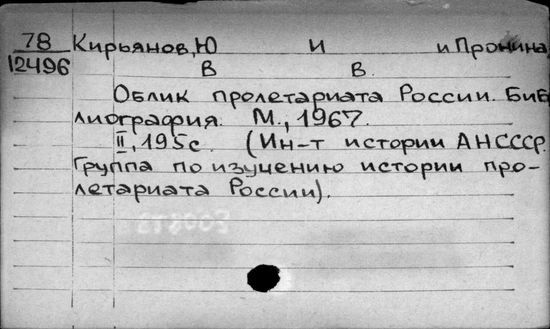 78 Кирьянов, Ю И и Пронина,
12496 В В.
Облик пролетариата России. Биб
лиография. М., 1967.
II, 195с. (Ин-т истории АНСССР.
Группа по изучению истории про-
летариата России).